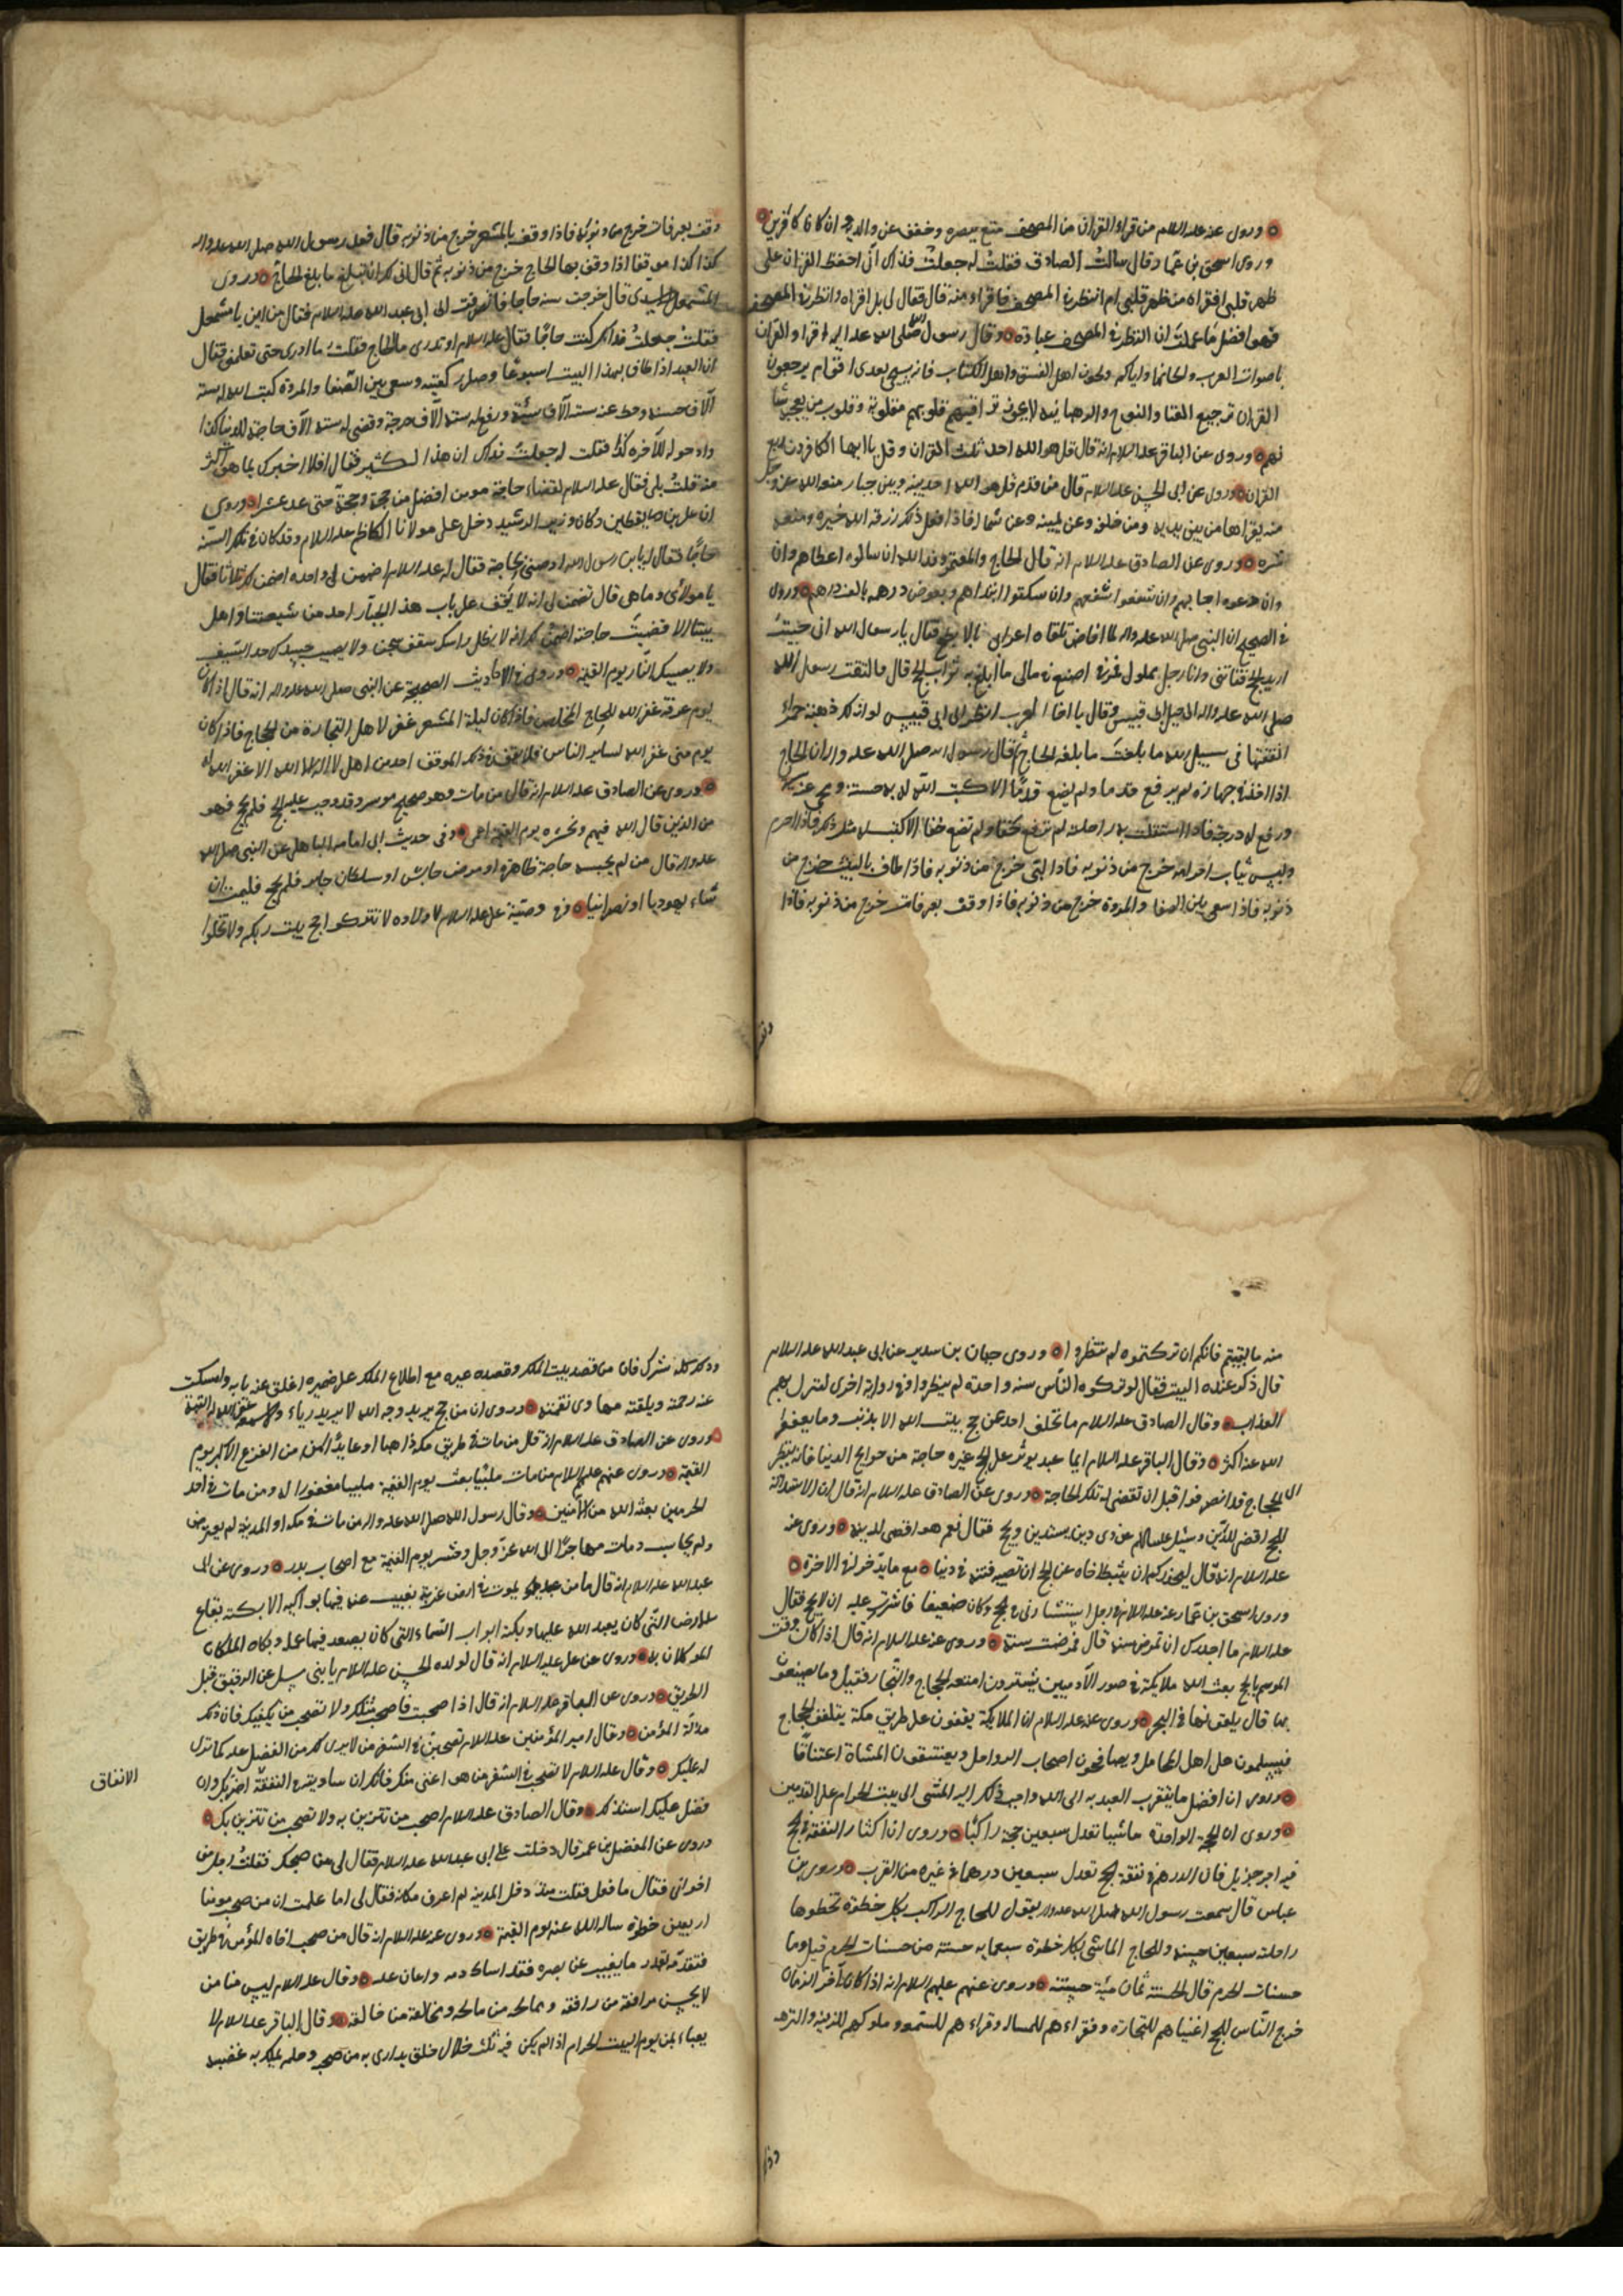 وروى عنه عليه السلام من قراء القران من المصحف متع ببصره وخفف عن والديه وان كانا كافرين
وروى اسحق بن عمار قال سالت الصادق فقلت له جعلت فداك انى احفظ القران على
ظهر قلبى افقراه من ظهر قلبى ام انظر فى المصحف فاقراه منه قال فقال لى بل اقراه وانظر فى المصحف
فهو افضل ما عملت ان النظر فى المصحف عبادة وقال رسول الله صلى الله عليه واله اقراوا القران
باصوات العرب والحانها واياكم ولحون اهل الفسق واهل الكتاب فانه سيجى بعدى اقوام يرجعون
القران ترجيع الغنا والنوح والرهبانيه لا يجوز تراقيهم قلوبهم مقلوبة وقلوب من يعجبه شأ
نهم وروى عن الباقر عليه السلام انه قال قل هو الله احد ثلث القران وقل يا ايها الكافرون ربع
القران وروى عن ابى الحسن عليه السلام قال من قدم قل هو الله احد بينه وبين جبار منعه الله عز وجل
منه يقراها من بين يديه ومن خلفه وعن يمينه وعن شماله فاذا فعل ذلك رزقه الله خيره ومنعه
شره وروى عن الصادق عليه السلام انه قال الحاج والمعتمر وفد الله ان سالوه اعطاهم وان
وان دعوه اجابهم وان شفعوا شفعهم وان سكتوا ابتداهم ويعوض درهم بالف درهم وروى
فى الصحيح ان النبى صلى الله عليه واله لما افاض تلقاه اعرابى بالابطح فقال يا رسول الله انى خرجت
اريد الحج ففاتنى وانا رجل مملول فمرنى اصنع فى مالى ما ابلغ به ثواب الحج قال فالتفت رسول الله
صلى الله عليه واله الى جبل ابى قبيس وقال يا اخا العرب انظر الى ابى قبيس لو انه لك ذهبة حمراء
انفقتها فى سبيل الله ما بلغت ما بلغه الحاج ثم قال رسول الله صلى الله عليه واله ان الحاج
اذا اخذ فى جهازه لم يرفع قدما ولم يضع قدما الا كتب الله له به حسنة ومحى عنه سيئة
ورفع له درجة فاذا استقلت به راحلته لم ترفع خفا ولم تضع خفا الا كتب له مثل ذلك فاذا احرم
ولبس ثياب احرامه خرج من ذنوبه فاذا لبى خرج من ذنوبه فاذا طاف بالبيت خرج من
ذنوبه فاذا سعى بين الصفا والمروة خرج من ذنوبه فاذا وقف بعرفات خرج من ذنوبه فاذا
وقف بعرفات خرج من ذنوبه فاذا وقف بالمشعر خرج من ذنوبه قال فعد رسول الله صلى الله عليه واله
كذا كذا موقفا اذا وقف بها الحاج خرج من ذنوبه ثم قال انى لك ان تبلغ ما بلغ الحاج وروى
المشمعل الاسدى قال خرجت سنه حاجا فانصرفت الى ابى عبد الله عليه السلام فقال من اين يا مشمعل
فقلت جعلت فداك كنت حاجا فقال عليه السلام او تدرى ما للحاج فقلت ما ادرى حتى تعلمنى فقال
ان العبد اذا طاف بهذا البيت اسبوعا وصلى ركعتيه وسعى بين الصفا والمروة كتب الله له ستة
آلاف حسنه وحط عنه ستة آلاف سيئة ورفع له ستة آلاف درجة وقضى له ستة آلاف حاجة للدنيا كذا
واد خر له للآخره كذا فقلت له جعلت فداك ان هذا لكثير فقال افلا اخبرك بما هو اكثر
منه قلت بلى فقال عليه السلام لقضاء حاجة مومن افضل من حجة وحجة حتى عد عشرا وروى
ان على بن يقطين وكان وزير الرشيد دخل على مولانا الكاظم عليه السلام وقد كان فى تلك السنة
حاجا فقال له يا بن رسول الله اوصنى بحاجة فقال له عليه السلام اضمن لى واحده اضمن لك ثلاثا فقال
يا مولاى وما هى قال تضمن لى انه لا يقف على باب هذا الجبار احد من شيعتنا واهل
بيتنا الا قضيت حاجته اضمن لك انه لا يظل راسك سقف سجن ولا يصيب جسدك حد السيف
ولا يصيبك النار يوم القيمة وروى فى الاحاديث الصحيحة عن النبى صلى الله عليه واله انه قال اذا كان
يوم عرفة غفر الله للحاج المخلص فاذا كان ليلة المشعر غفر لاهل التجارة من الحجاج فاذا كان
يوم منى غفر الله لساير الناس فلا يقف فى ذلك الموقف احد من اهل لا اله الا الله الا غفر الله له
وروى عن الصادق عليه السلام انه قال من مات وهو صحيح موسر وقد وجب عليه الحج فلم يحج فهو
من الذين قال الله فيهم ونحشره يوم القيمة اعمى وفى حديث ابى امامه الباهلى عن النبى صلى الله
عليه واله قال من لم يحبسه حاجة ظاهره او مرض حابس او سلطان جاير فلم يحج فليمت ان
شاء يهوديا او نصرانيا وفى وصية على عليه السلام لاولاده لا تتركوا حج بيت ربكم ولا تخلوا
منه ما بقيتم فانكم ان تركتموه لم تنظروا وروى حنان بن سدير عن ابى عبد الله عليه السلام
قال ذكر عنده البيت فقال لو تركوه الناس سنه واحدة لم ينظروا وفى رواية اخرى لنزل بهم
العذاب وقال الصادق عليه السلام ما تخلف احد عن حج بيت الله الا بذنب وما يعفوا
الله عنه اكثر وقال الباقر عليه السلام ايما عبد يوثر على الحج غيره حاجة من حوايج الدنيا فانه ينظر
الى الحجاج قد انصرفوا قبل ان تقضى له تلك الحاجة وروى عن الصادق عليه السلام انه قال ان الاستدانة
للحج اقضى للدين وسئل عليه السلام عن ذى دين يستدين ويحج فقال نعم هو اقضى لدينه وروى عنه
عليه السلام انه قال ليحذر احدكم ان يثبط اخاه عن الحج ان تصيبه فتنة فى دنياه مع ما يدخر له فى الاخرة
وروى اسحق بن عمار عنه عليه السلام فى رجل استشارنى فى الحج وكان ضعيفا فاشرت عليه ان لا يحج فقال
عليه السلام ما اجدرك ان تمرض سنه قال فمرضت سنة وروى عنه عليه السلام انه قال اذا كان وقت
الموسم بالحج بعث الله ملايكة فى صور الآدميين يشترون امتعة الحاج والتجار فقيل وما يصنعون
بها قال يلقونها فى البحر وروى عنه عليه السلام ان الملايكة يقفون على طريق مكة يتلقون الحجاج
فيسلمون على اهل المحامل ويصافحون اصحاب الرواحل ويعتنقون المشاة اعتناقا
وروى ان افضل ما يتقرب العبد به الى الله واحب ذلك اليه المشى الى بيت الحرام على القدمين
وروى ان الحجة الواحدة ماشيا تعدل سبعين حجة راكبا وروى ان اكثار النفقة فى الحج
فيه اجر جزيل فان الدرهم فى نفقة الحج تعدل سبعين درهما فى غيره من القرب وروى بن
عباس قال سمعت رسول الله صلى الله عليه واله يقول للحاج الراكب بكل خطوة تخطوها
راحلته سبعين حسنه وللحاج الماشى بكل خطوة سبعمايه حسنة من حسنات الحرم قيل وما
حسنات الحرم قال الحسنة ثمان مئية حسنة وروى عنهم عليهم السلام انه اذا كان آخر الزمان
خرج الناس للحج اغنياهم للتجارة وفقراءهم للمساله وقراءهم للسمعه وملوكهم للزينه والنزهه
وذلك كله شرك فان من قصد بيت الملك وقصده غيره مع اطلاع الملك على ضميره اغلق عنه بابه وامسكت
عنه رحمة ويلقته مهاوى نقمته وروى ان من حج يريد وجه الله لا يريد رياء ولا سمعه غفر الله له البتة
وروى عن الصادق عليه السلام انه قال من مات فى طريق مكة ذاهبا او عايدا امن من الفزع الاكبر يوم
القيمة وروى عنهم عليهم السلام من مات ملبيا بعث يوم القيمة ملبيا مغفورا له ومن مات فى احد
الحرمين بعثه الله من الآمنين وقال رسول الله صلى الله عليه واله من مات فى مكه او المدينة لم يعرض
ولم يحاسب ومات مهاجرا الى الله عز وجل وحشر يوم القيمة مع اصحاب بدر وروى عن ابى
عبد الله عليه السلام انه قال ما من عبد يموت فى ارض غربة يغيب عنه فيها بواكيه الا بكته بقاع
الارض التى كان يعبد الله عليها وبكته ابواب السماء التى كان يصعد فيها عمله وبكاه الملكان
الموكلان به وروى عن على عليه السلام انه قال لولده الحسن عليه السلام يا بنى سل عن الرفيق قبل
الطريق وروى عن الباقر عليه السلام انه قال اذا صحبت فاصحب مثلك ولا تصحب من يكفيك فان ذلك
مذلة المؤمن وقال امير المؤمنين عليه السلام لا تصحبن فى السفر من لا يرى لك من الفضل عليه كما ترى
له عليك وقال عليه السلام لا تصحب فى السفر من هو اغنى منك فانك ان ساويته فى النفقة اضر بك وان
فضل عليك استذلك وقال الصادق عليه السلام اصحب من تتزين به ولا تصحب من تتزين بك
وروى عن المفضل بن عمر قال دخلت على ابى عبد الله عليه السلام فقال لى من صحبك فقلت رجل من
اخوانى فقال ما فعل فقلت منذ دخل المدينه لم اعرف مكانه فقال لى اما علمت ان من صحب مومنا
اربعين خطوة ساله الله عنه يوم القيمة وروى عنه عليه السلام انه قال من صحب اخاه المؤمن فى طريق
فتقدمه بقدر ما يغيب عن بصره فقد اساك دمه واعان عليه وقال عليه السلام ليس منا من
لا يحسن مرافقة من رافقه وممالحة من مالحه ومخالفة من خالفه وقال الباقر عليه السلام لا
يعباء بمن يوم البيت الحرام اذا لم يكن فيه ثلث خلال خلق يدارى به من صحبه وحلم يملك به غضبه
الانفاق